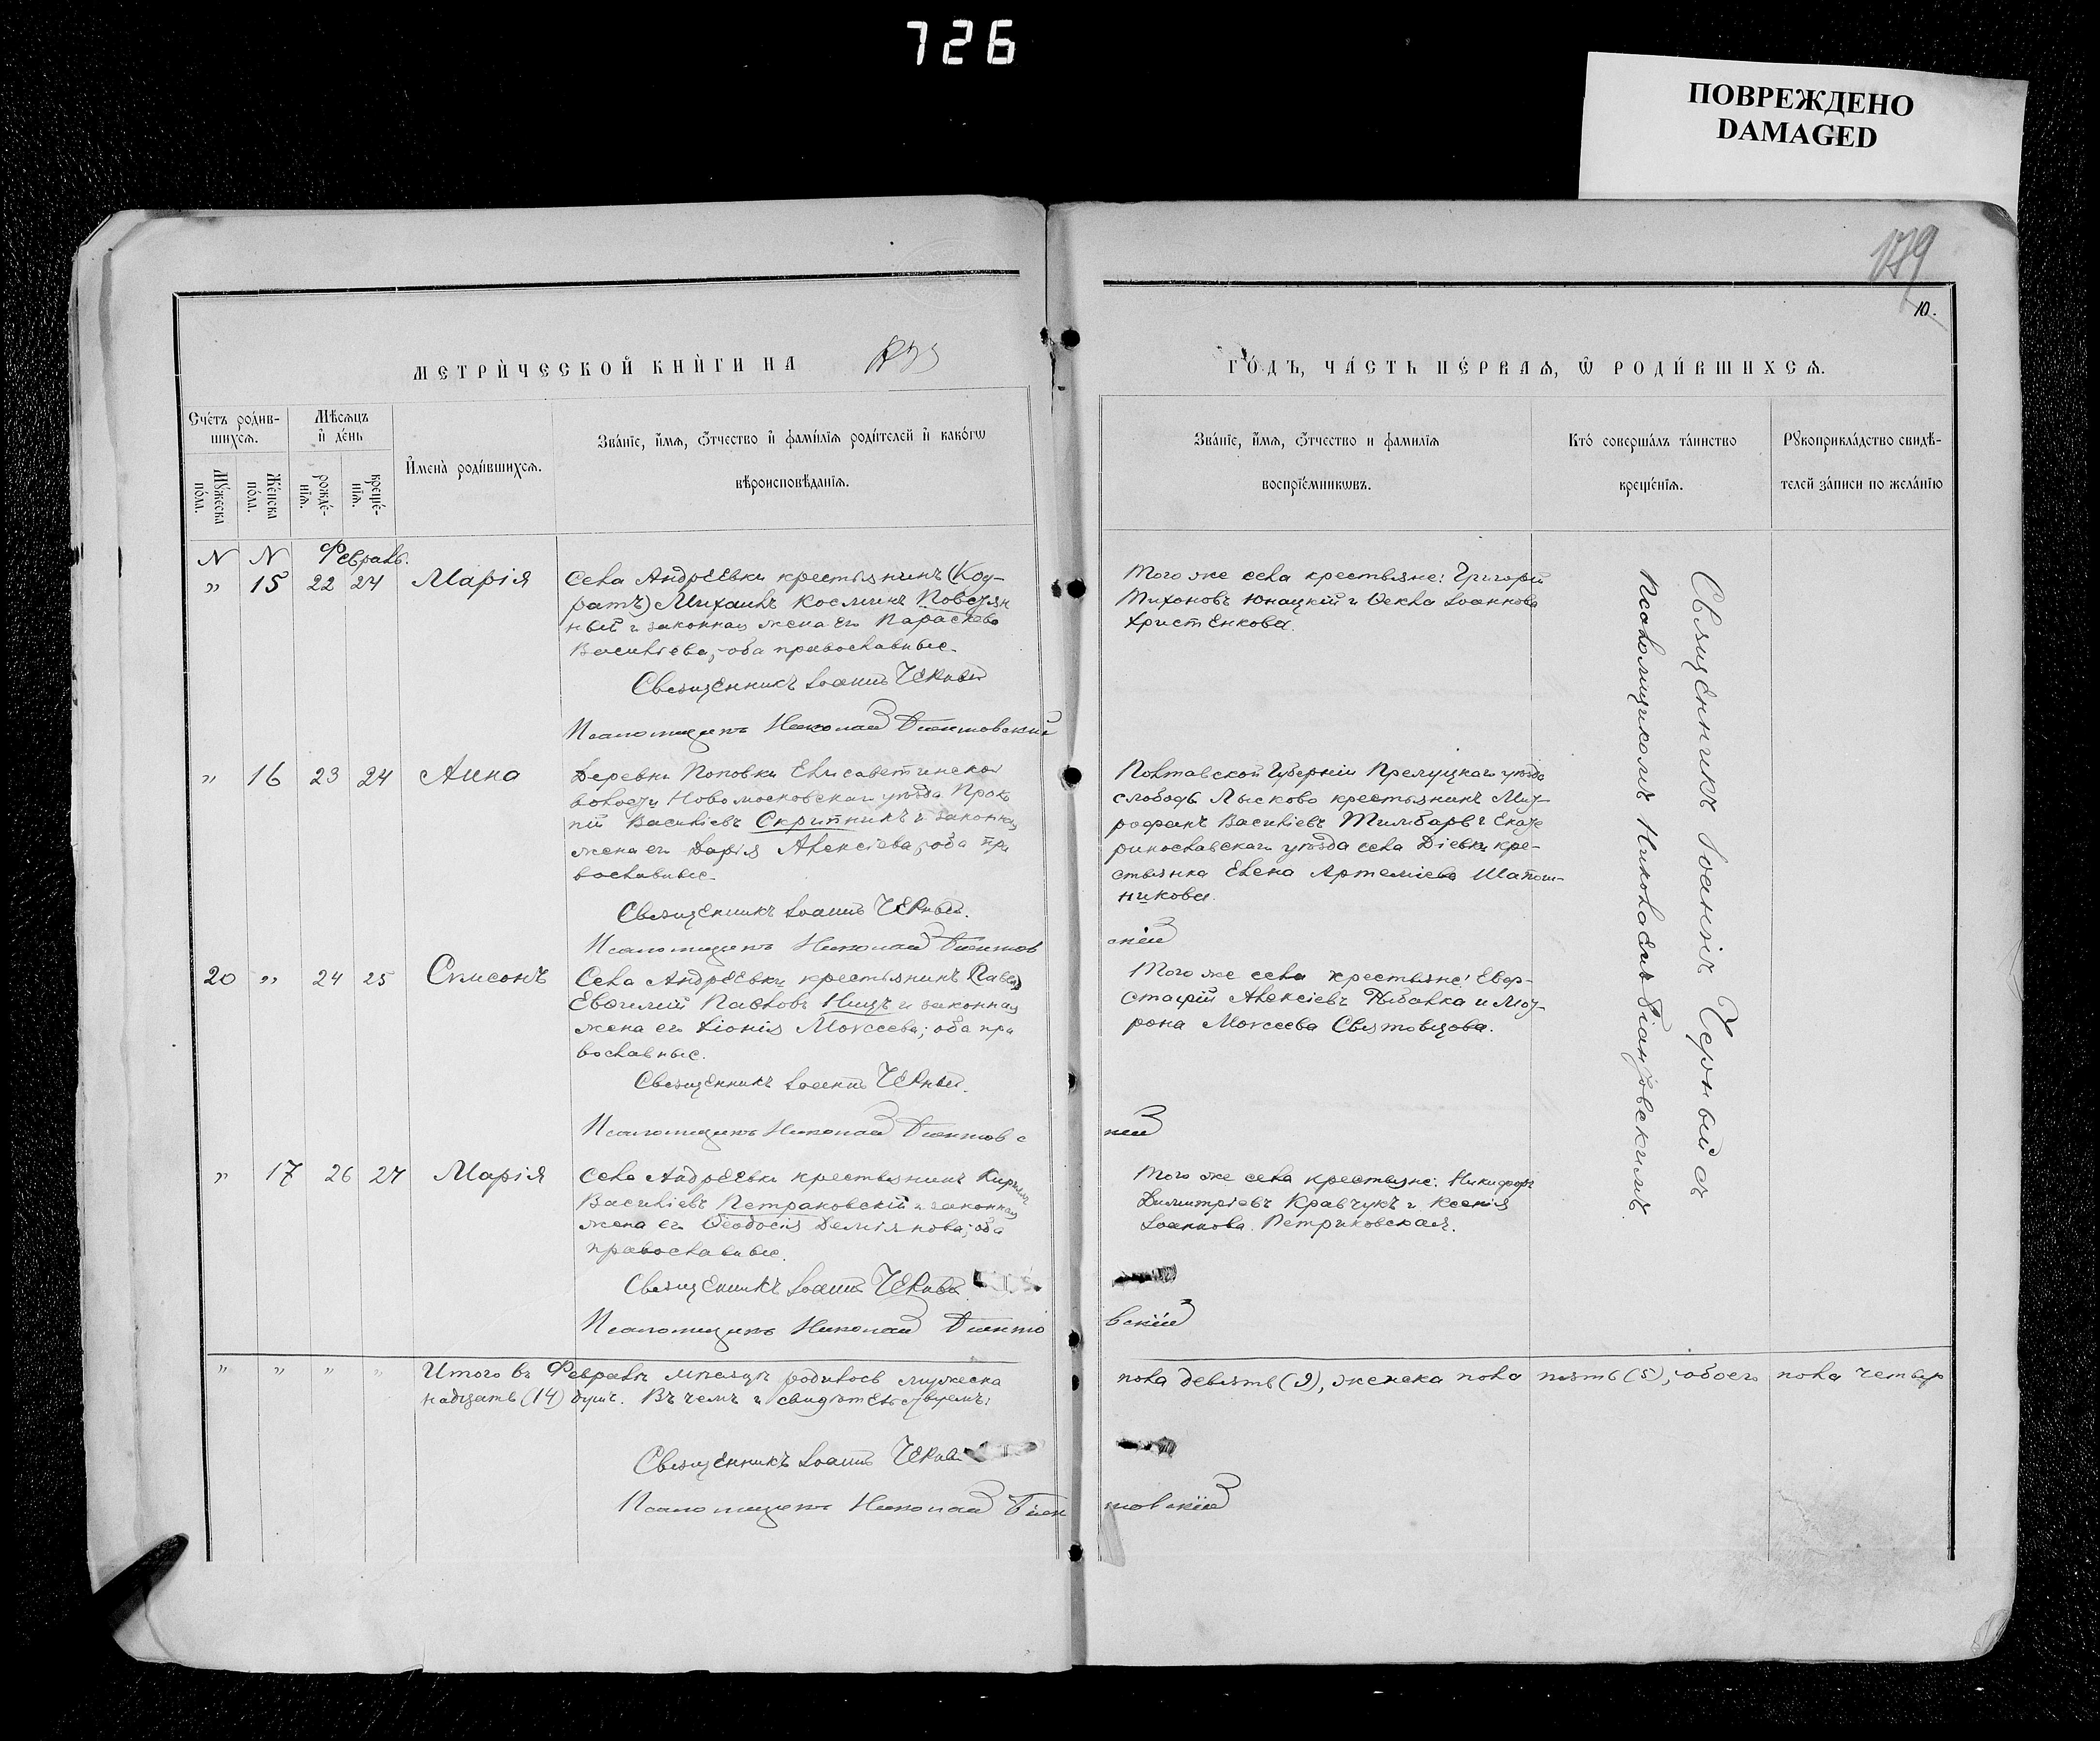 726
ПОВРЕЖДЕНО
DAMAGED
179
10.
МЕТРИ́ЧЕСКОЙ КНИ́ГИ НА
ГО́ДЪ, ЧА́СТЬ ПЕ́РВАѦ, Ѡ РОДИ́ВШИХСѦ.
Сче́тъ роди́в-
шихсѧ.
Мѣ́сѧцъ
и҆ де́нь
Мꙋ́жеска
по́ла.
Же́нска
по́ла.
рожде́-
нїѧ.
креще́-
нїѧ.
И҆мена̀ роди́вшихсѧ.
Зва́нїе, и҆́мѧ, ѻ҆́тчество и҆ фами́лїѧ роди́телей и҆ како́гѡ
вѣроисповѣ́данїѧ.
Зва́нїе, и҆́мѧ, ѻ҆́тчество и фами́лїѧ
воспрїе́мникѡвъ.
Кто̀ соверша́лъ та́инство
креще́нїѧ.
Рꙋкоприкла́дство свидѣ́-
телей за́писи по жела́нїю
N N Февраль.
" 15 22 24 Марія
Села Андреевки крестьянинъ (Код-
ратъ) Михаилъ Косминъ
ный и законная жена его Параскева
Василіева, оба православные.
Священникъ Іоаннъ Черный
Псаломщикъ Николай
Того же села крестьяне: Григорій
Тихоновъ Юнацкій и Ѳекла Іоаннова
Христенкова.
" 16 23 24 Анна
Деревни Поповки Елисаветинской
волости Новомосковскаго уѣзда Проко
пій Василіевъ Скрипникъ и законная
жена его Дарія Алексіева, оба пра
вославные.
Священникъ Іоаннъ Черный.
Псаломщикъ Николай
скій
Полтавской Губерніи Прелуцкаго уѣзда
слободы Лысково крестьянинъ Мит-
рофанъ Василіевъ Тимбаръ и Екате
ринославскаго уѣзда села Діевки кре-
стьянка Елена Артеміева Шапош-
никова.
20 " 24 25 Сѵмеонъ
Села Андреевки крестьянинъ (Павел)
Евѳимій Павловъ Ницъ и законная
жена его Моисеева; оба пра
вославные.
Священникъ Іоаннъ Черный.
Псаломщикъ Николай
кій
Того же села крестьяне: Евс-
тафій Алексіевъ и Мат-
рона Моисеева Святовцова.
" 17 26 27 Марія
Села Андреевки крестьянинъ Кириллъ
Василіевъ Петраковскій и законная
жена его Ѳеодосія Деміянова; оба
православные.
Священникъ Іоаннъ Черный
Псаломщикъ Николай
вскій
Того же села крестьяне: Никифоръ
Димитріевъ Кравчукъ и Ксенія
Іоаннова Петриковская.
Священникъ Іоаннъ Черный съ
Псаломщикомъ Николаемъ
" " " " Итого въ Февралѣ мѣсяцѣ родилось мужеска пола девять (9), женска пола пять (5), обоего пола четыр
надцать (14) душъ. Въ чемъ и свидѣтельствуемъ:
Священникъ Іоаннъ Черный
Псаломщикъ Николай
товскій